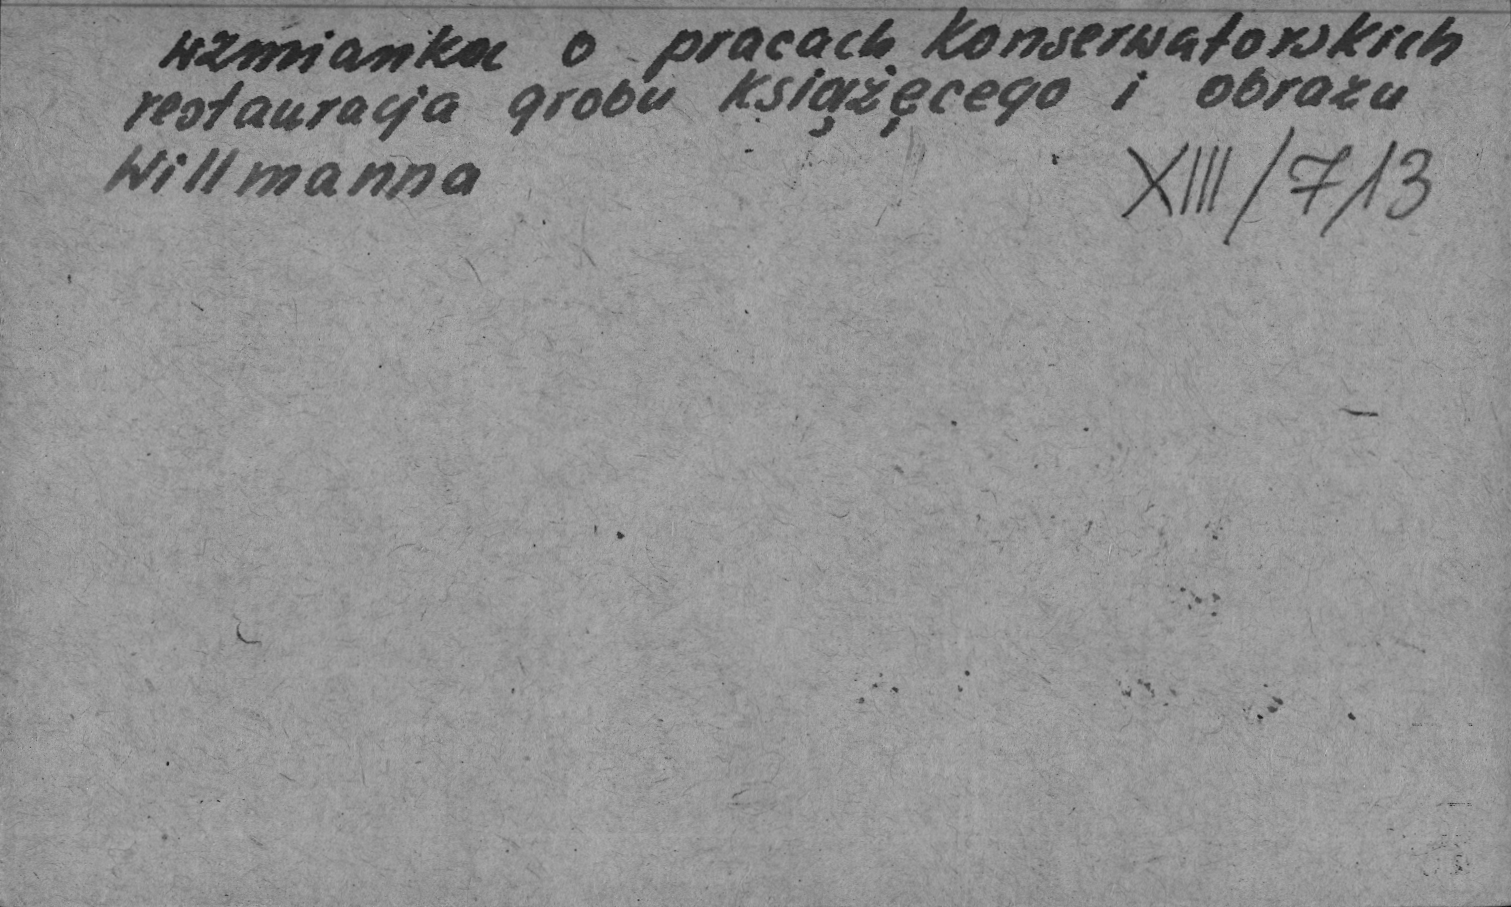 wzmianka o pracach konserwatorskich
restauracja grobu książęcego i obrazu
Willmanna
XIII/713